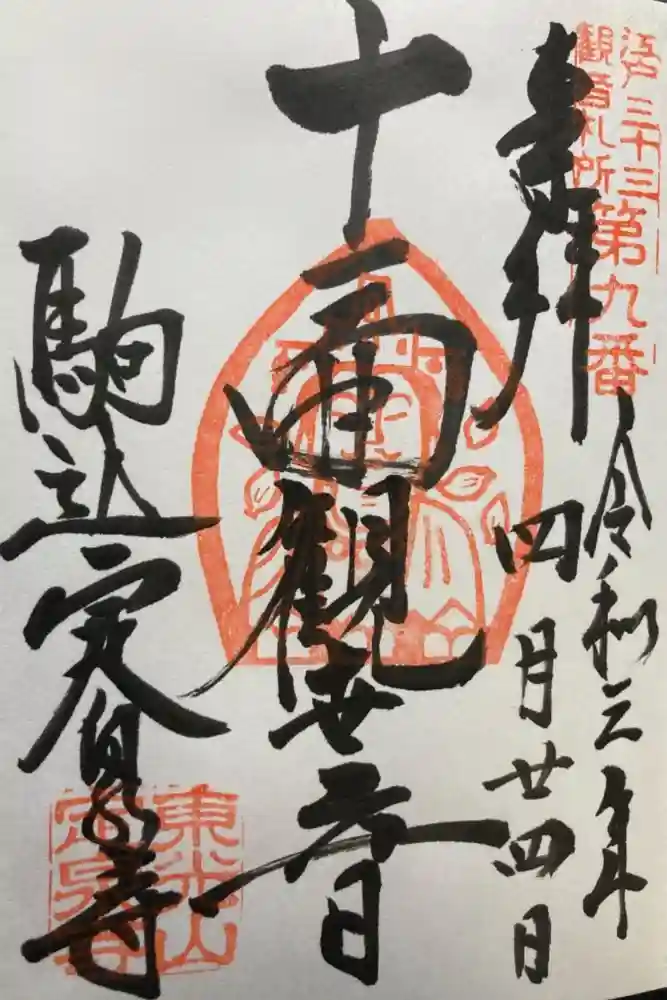 江戸三十三
観音札所第九番
奉拝
令和三年
四月廿四日
十一面観世音
駒込定泉寺
東光山
定泉寺